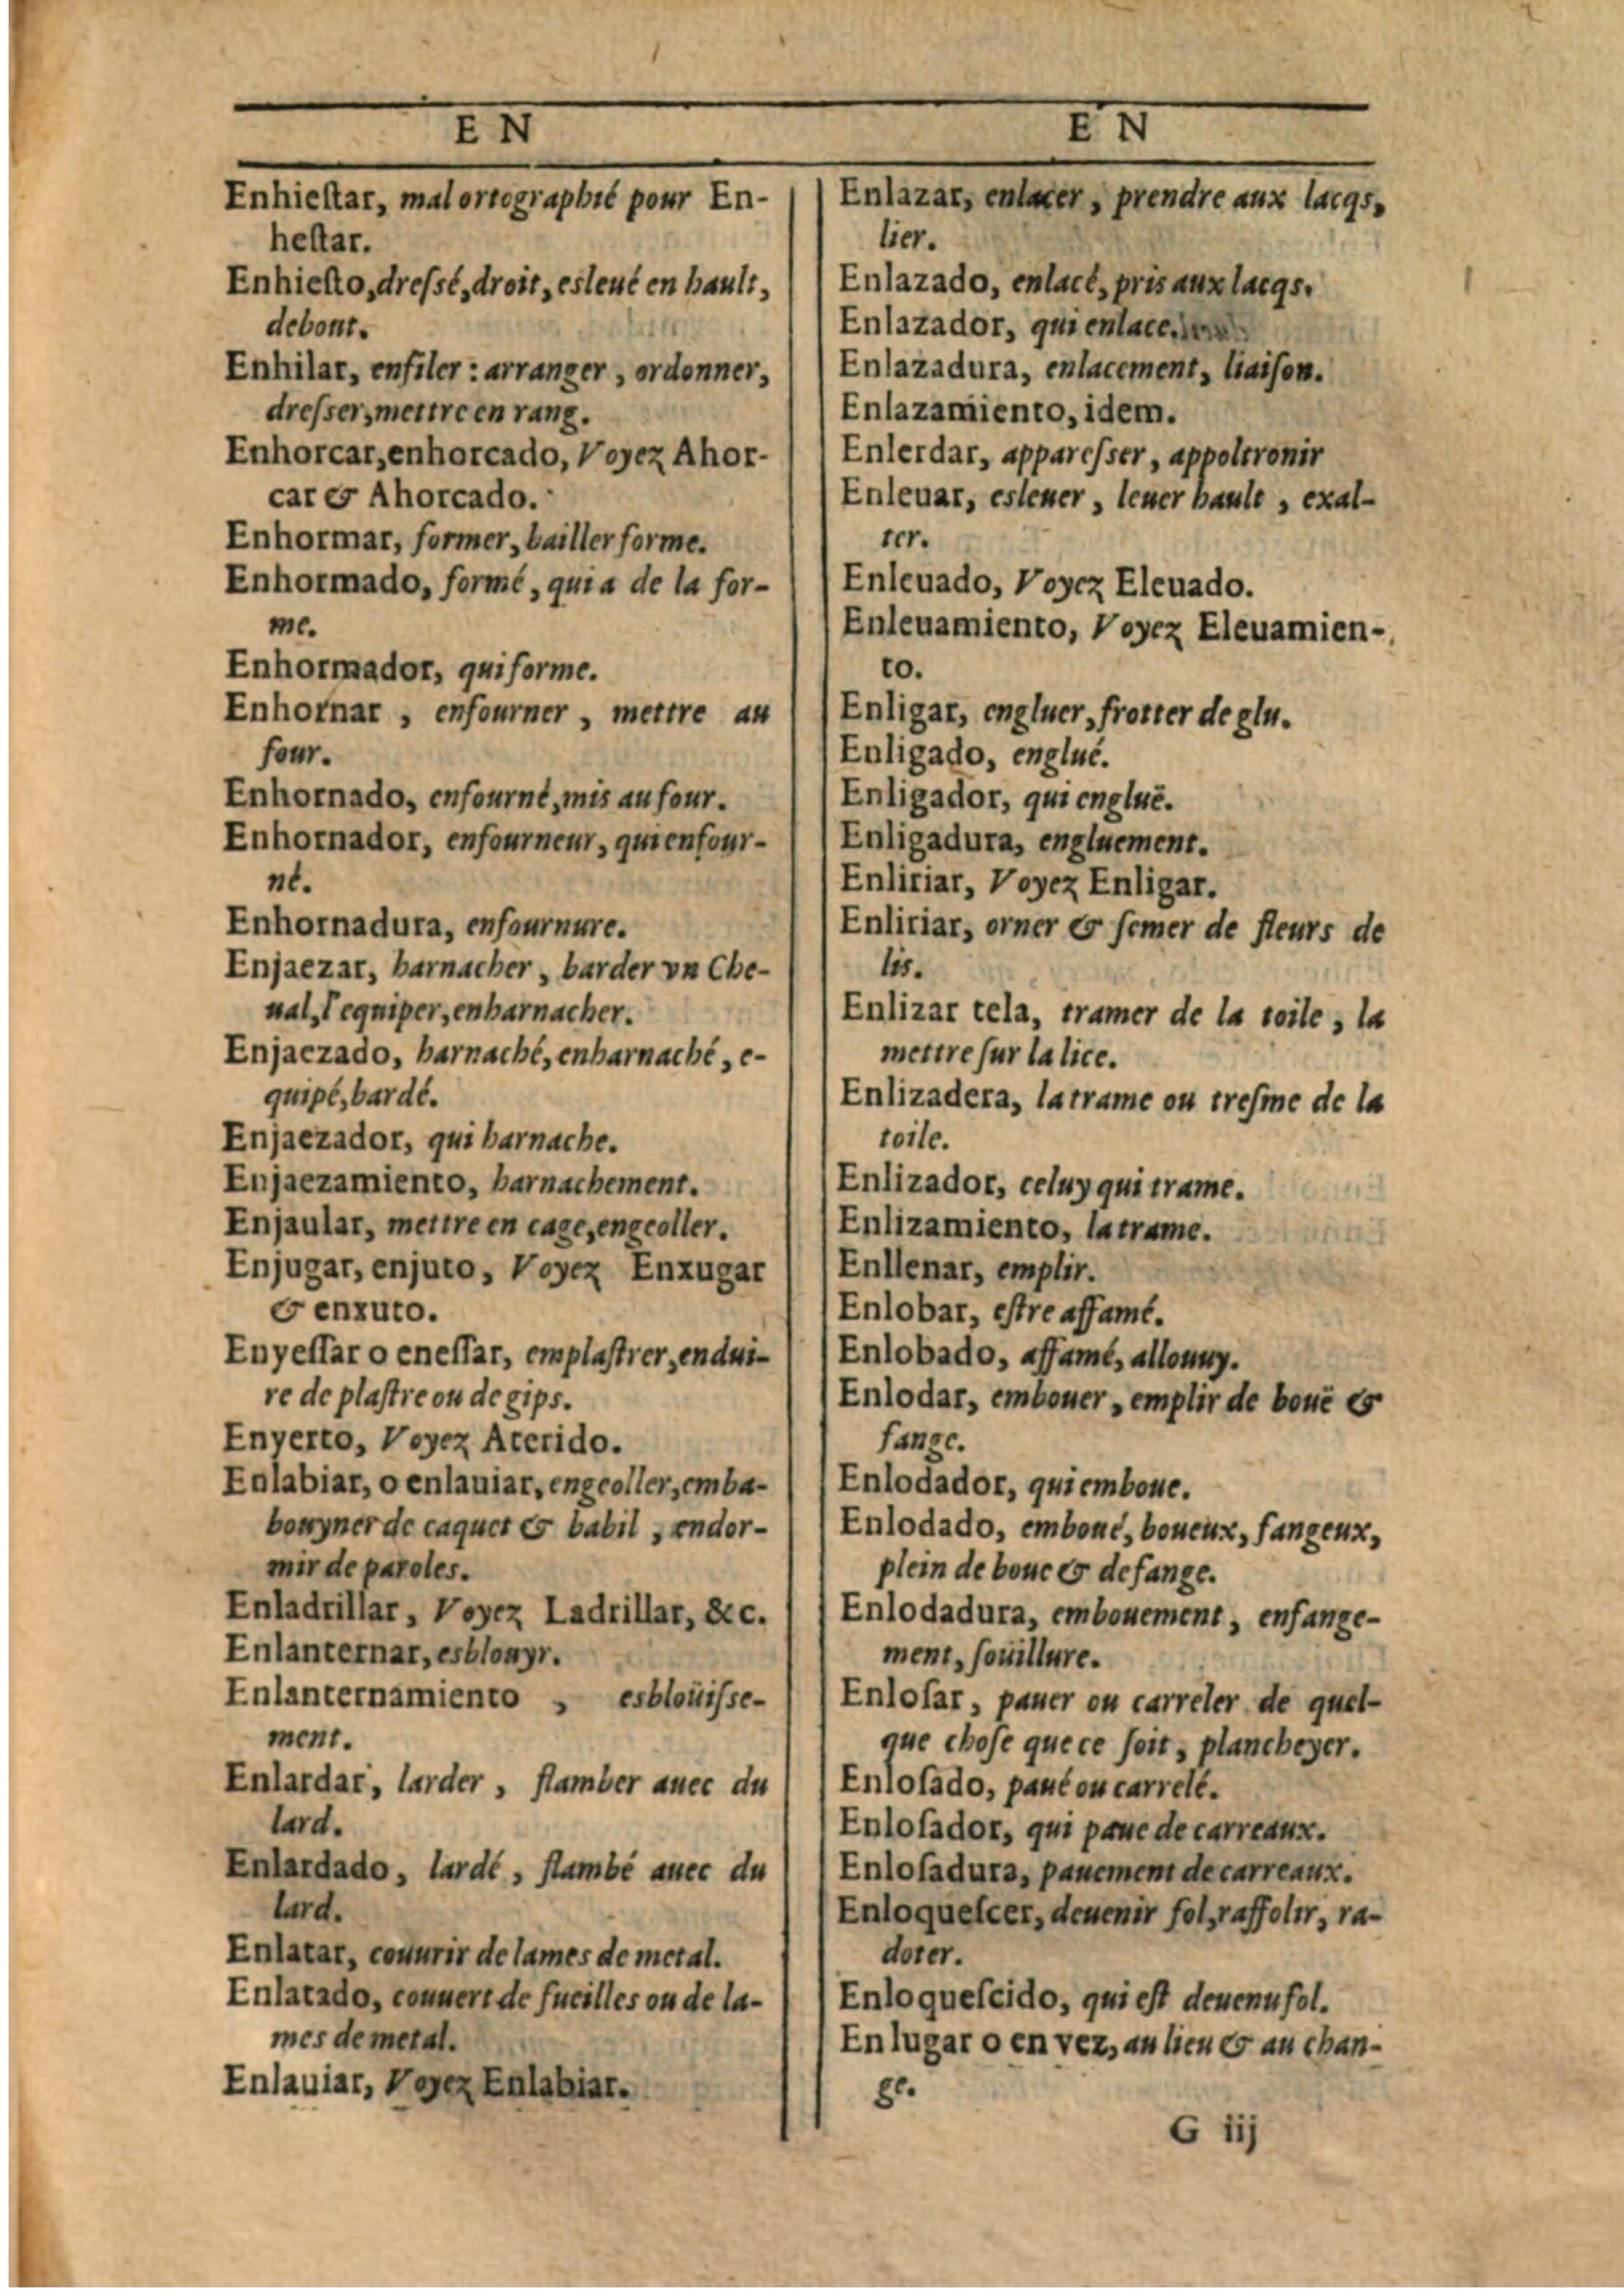 E N
Enhieſtar, mal ortographié pour En-
heſtar.
Enhieſto, dreſsé, droit, esleué en hault,
debout.
Enhilar, enfiler : arranger, ordonner,
dreſser, mettre en rang.
Enhorcar, enhorcado, Voyez Ahor-
car & Ahorcado.
Enhormar, former, bailler forme.
Enhormado, formé, qui a de la for-
me.
Enhormador, qui forme.
Enhornar, enfourner, mettre au
four.
Enhornado, enfourné, mis au four.
Enhornador, enfourneur, qui enfour-
né.
Enhornadura, enfournure.
Enjaezar, harnacher, barder vn Che-
ual, l'equiper, enharnacher.
Enjaezado, harnaché, enharnaché, e-
quipé, bardé.
Enjaezador, qui harnache.
Enjaezamiento, harnachement.
Enjaular, mettre en cage, engeoller.
Enjugar, enjuto, Voyez Enxugar
& enxuto.
Enyeſſar o eneſſar, emplaſtrer, endui-
re de plaſtre ou de gips.
Enyerto, Voyez Aterido.
Enlabiar, o enlauiar, engeoller, emba-
bouyner de caquet & babil, endor-
mir de paroles.
Enladrillar, Voyez Ladrillar, &c.
Enlanternar, esblouyr.
Enlanternamiento, esbloüiſse-
ment.
Enlardar, larder, flamber auec du
lard.
Enlardado, lardé, flambé auec du
lard.
Enlatar, couurir de lames de metal.
Enlatado, couuert de fueilles ou de la-
mes de metal.
Enlauiar, Voyez Enlabiar.
E N
Enlazar, enlacer, prendre aux lacqs,
lier.
Enlazado, enlacé, pris aux lacqs.
Enlazador, qui enlace.
Enlazadura, enlacement, liaiſon.
Enlazamiento, idem.
Enlerdar, appareſser, appoltronir
Enleuar, esleuer, leuer hault, exal-
ter.
Enleuado, Voyez Eleuado.
Enleuamiento, Voyez Eleuamien-
to.
Enligar, engluer, frotter de glu.
Enligado, englué.
Enligador, qui engluë.
Enligadura, engluement.
Enliriar, Voyez Enligar.
Enliriar, orner & ſemer de fleurs de
lis.
Enlizar tela, tramer de la toile, la
mettre ſur la lice.
Enlizadera, la trame ou treſme de la
toile.
Enlizador, celuy qui trame.
Enlizamiento, la trame.
Enllenar, emplir.
Enlobar, eſtre affamé.
Enlobado, affamé, allouuy.
Enlodar, embouer, emplir de bouë &
fange.
Enlodador, qui emboue.
Enlodado, emboué, boueux, fangeux,
plein de boue & de fange.
Enlodadura, embouement, enfange-
ment, ſoüillure.
Enloſar, pauer ou carreler de quel-
que choſe que ce ſoit, plancheyer.
Enloſado, paué ou carrelé.
Enloſador, qui paue de carreaux.
Enloſadura, pauement de carreaux.
Enloqueſcer, deuenir fol, raffolir, ra-
doter.
Enloqueſcido, qui eſt deuenu fol.
En lugar o en vez, au lieu & au chan-
ge.
G iij